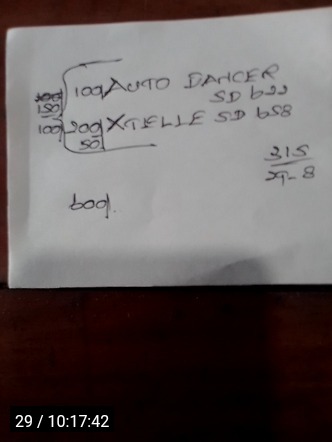 100/ AUTO DANCER
SD 622
200/ XTELLE SD 658
50
150
100/
315
29-8
600/.
29 / 10:17:42